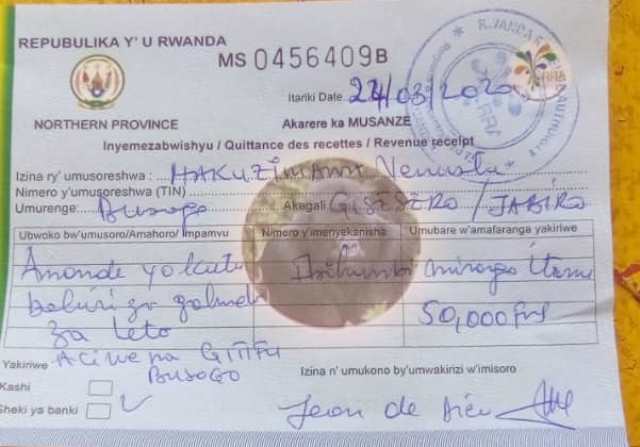 REPUBULIKA Y' U RWANDA
MS 0456409B
Itariki Date 24/03/2020
NORTHERN PROVINCE
Akarere ka MUSANZE
Inyemezabwishyu / Quittance des recettes / Revenue receipt
Izina ry' umusoreshwa : HAKUZIMANA Venuste
Nimero y'umusoreshwa (TIN)
Umurenge: Busogo Akagali GISESERO / JABIRO
Ubwoko bw'umusoro/Amahoro/ Impamvu Nimero y'imenyekanisha Umubare w'amafaranga yakiriwe
Amande yo kuta Ibihumbi mirongo itanu
za leta 50,000frs
Yakiriwe Aciwe na GITIFU
BUSOGO
Kashi
Sheki ya banki
Izina n' umukono by'umwakirizi w'imisoro
Jean de Dieu
RRA